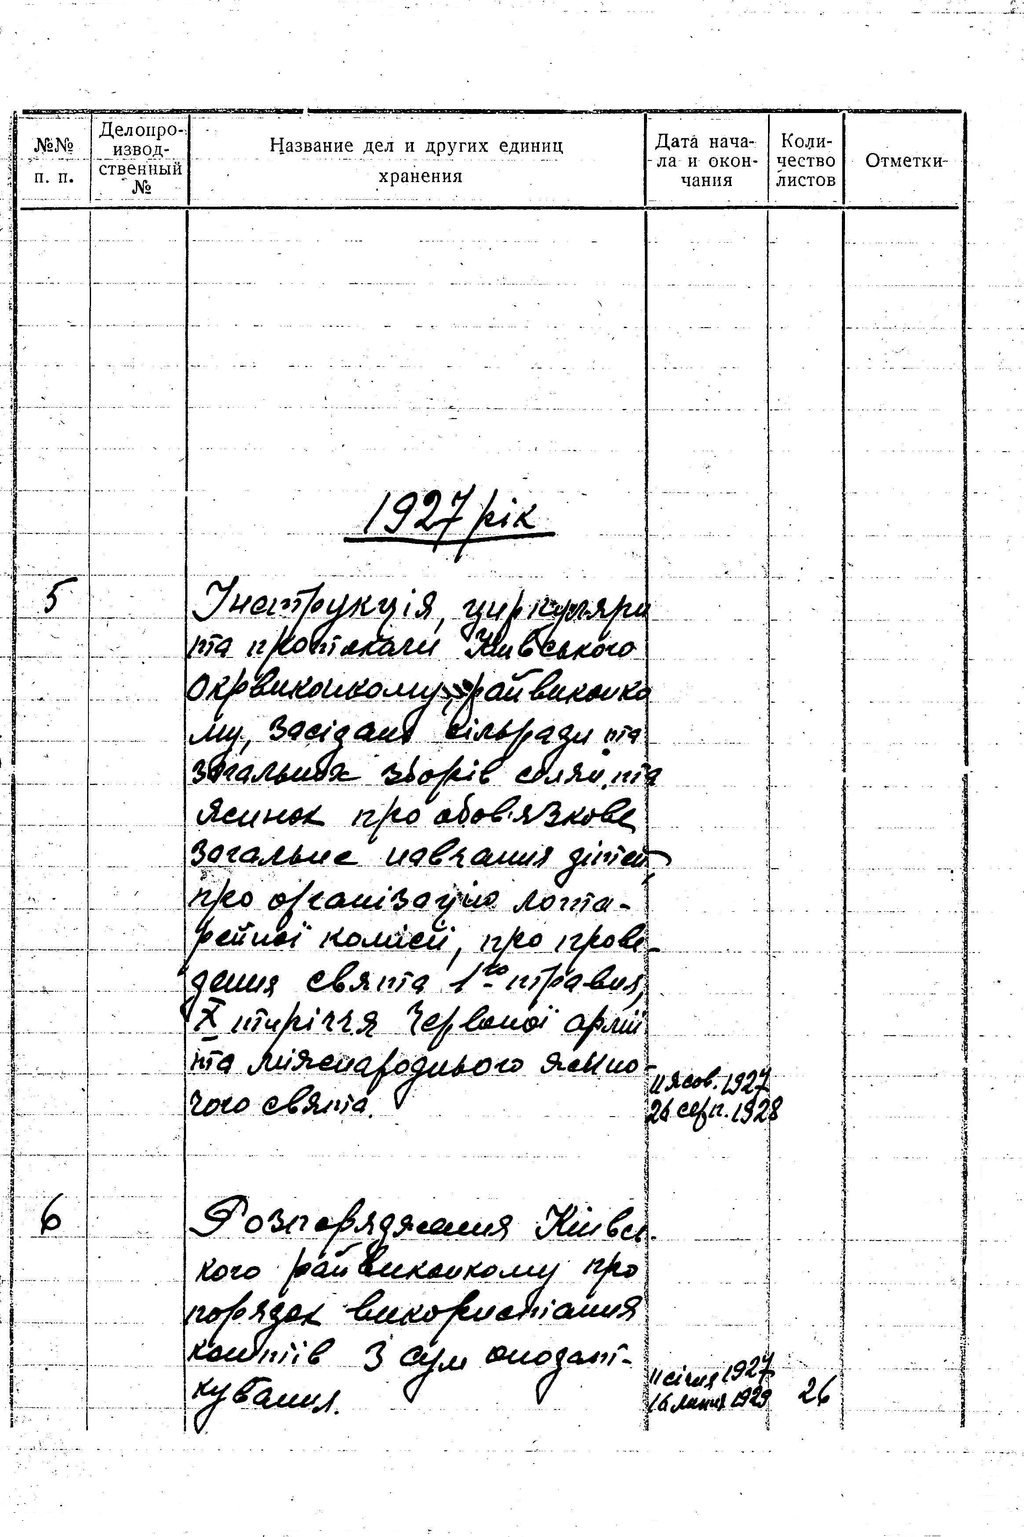 №№ п. п.
Делопро-
извод-
ственный
№
Название дел и других единиц
хранения
Дата нача-
ла и окон-
чания
Коли-
чество
листов
Отметки
1927 рік
5
Інструкція, циркуляри
та протокали Київського
Окрвиконкому, райвиконко
му, засідань сільради та
загальних зборів селян та
жінок про обов'язкове
загальне навчання дітей,
про організацію лота-
рейної комісії, про прове-
дення свята 1го травня,
X тиріччя Червоної армії
та міжнароднього жіно-
чого свята.
11 жов. 1927
26 серп. 1928
6
Розпорядження Київсь-
кого райвиконкому про
порядок використання
коштів з сум оподат-
кування.
11 січня 1927
16 липня 1929
26